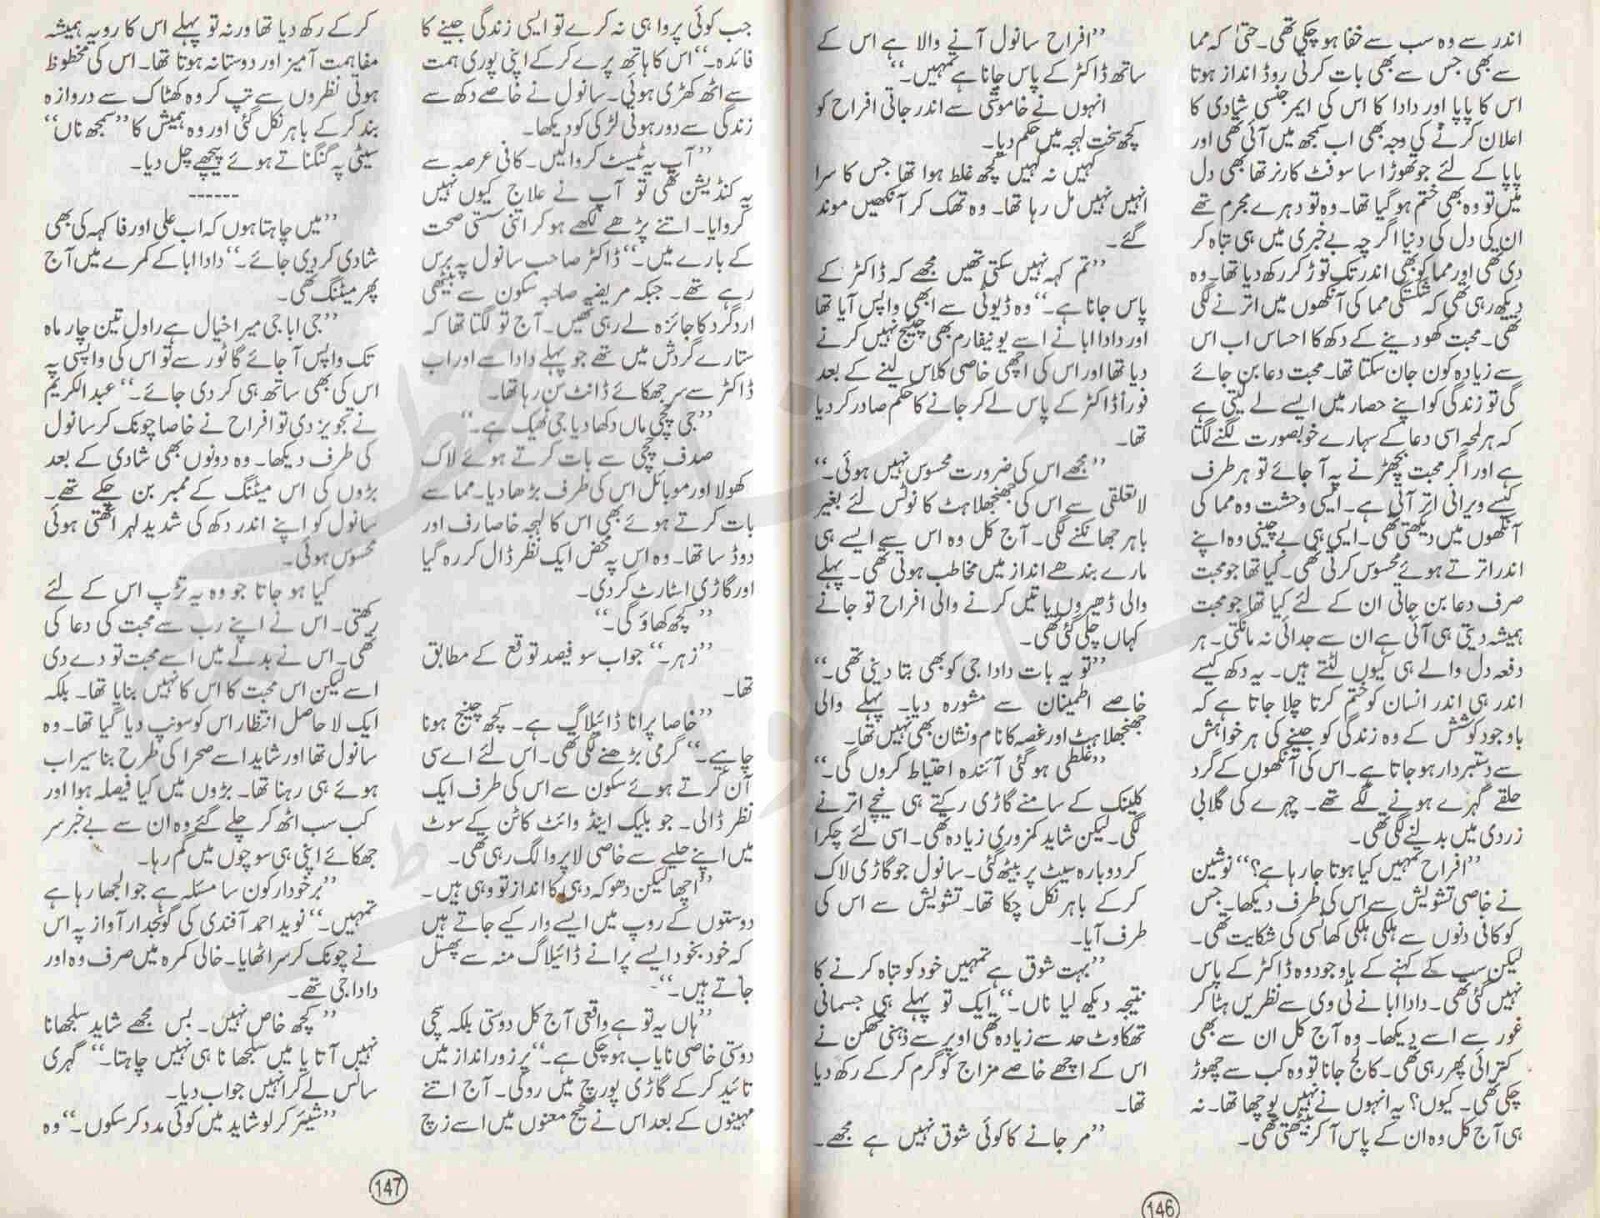 اندر سے وہ سب سے خفا ہو چکی تھی۔ حتیٰ کہ مما
سے بھی جس سے بھی بات کرتی روڈ انداز ہوتا
اس کا پاپا اور دادا کا اس کی ایمرجنسی شادی کا
اعلان کرنے کی وجہ بھی اب سمجھ میں آئی تھی اور
پاپا کے لئے جو تھوڑا سا سوفٹ کارنر تھا بھی دل
میں تو وہ بھی ختم ہو گیا تھا۔ وہ تو دہرے مجرم تھے
ان کی دل کی دنیا اگر چہ بے خبری میں ہی تباہ کر
دی تھی اور مما کو بھی اندر تک توڑ کر رکھ دیا تھا۔ وہ
دیکھ رہی تھی کہ شکستگی مما کی آنکھوں میں اترنے لگی
تھی۔ محبت کھو دینے کے دکھ کا احساس اب اس
سے زیادہ کون جان سکتا تھا۔ محبت دعا بن جائے
گی تو زندگی کو اپنے حصار میں ایسے لے لیتی ہے
کہ ہر لمحہ اسی دعا کے سہارے خوبصورت لگنے لگتا
ہے اور اگر محبت بچھڑنے پہ آ جائے تو ہر طرف
کیسے ویرانی اتر آتی ہے۔ ایسی وحشت وہ مما کی
آنکھوں میں دیکھتی تھی۔ ایسی ہی بے چینی وہ اپنے
اندر اترتے ہوئے محسوس کرتی تھی۔ کیا تھا جو محبت
صرف دعا بن جاتی ان کے لئے کیا تھا جو محبت
ہمیشہ دیتی ہی آئی ہے ان سے جدائی نہ مانگتی۔ ہر
دفعہ دل والے ہی کیوں لٹتے ہیں۔ یہ دکھ کیسے
اندر ہی اندر انسان کو ختم کرتا چلا جاتا ہے کہ
باوجود کوشش کے وہ زندگی کو جینے کی ہر خواہش
سے دستبردار ہو جاتا ہے۔ اس کی آنکھوں کے گرد
حلقے گہرے ہونے لگے تھے۔ چہرے کی گلابی
زردی میں بدلنے لگی تھی۔
”افراح تمہیں کیا ہوتا جا رہا ہے؟“ نوشین
نے خاصی تشویش سے اس کی طرف دیکھا۔ جس
کو کافی دنوں سے ہلکی ہلکی کھانسی کی شکایت تھی۔
لیکن سب کے کہنے کے باوجود وہ ڈاکٹر کے پاس
نہیں گئی تھی۔ دادا ابا نے ٹی وی سے نظریں ہٹا کر
غور سے اسے دیکھا۔ وہ آج کل ان سے بھی
کترائی پھر رہی تھی۔ کالج جانا تو وہ کب سے چھوڑ
چکی تھی۔ کیوں؟ یہ انہوں نے نہیں پوچھا تھا۔ نہ
ہی آج کل وہ ان کے پاس آ کر بیٹھتی تھی۔
”افراح سانول آنے والا ہے اس کے
ساتھ ڈاکٹر کے پاس جانا ہے تمہیں۔“
انہوں نے خاموشی سے اندر جاتی افراح کو
کچھ سخت لہجہ میں حکم دیا۔
کہیں نہ کہیں کچھ غلط ہوا تھا جس کا سرا
انہیں نہیں مل رہا تھا۔ وہ تھک کر آنکھیں موند
گئے۔
”تم کہہ نہیں سکتی تھیں مجھے کہ ڈاکٹر کے
پاس جانا ہے۔“ وہ ڈیوٹی سے ابھی واپس آیا تھا
اور دادا ابا نے اسے یونیفارم بھی چینج نہیں کرنے
دیا تھا اور اس کی اچھی خاصی کلاس لینے کے بعد
فوراً ڈاکٹر کے پاس لے کر جانے کا حکم صادر کر دیا
تھا۔
”مجھے اس کی ضرورت محسوس نہیں ہوئی۔“
لاتعلقی سے اس کی جھنجھلاہٹ کا نوٹس لئے بغیر
باہر جھانکنے لگی۔ آج کل وہ اس سے ایسے ہی
مارے بندھے انداز میں مخاطب ہوتی تھی۔ پہلے
والی ڈھیروں باتیں کرنے والی افراح تو جانے
کہاں چلی گئی تھی۔
”تو یہ بات دادا جی کو بھی بتا دینی تھی۔“
خاصے اطمینان سے مشورہ دیا۔ پہلے والی
جھنجھلاہٹ اور غصہ کا نام و نشان بھی نہیں تھا۔
”غلطی ہو گئی آئندہ احتیاط کروں گی۔“
کلینک کے سامنے گاڑی رکتے ہی نیچے اترنے
لگی۔ لیکن شاید کمزوری زیادہ تھی۔ اسی لئے چکرا
کر دوبارہ سیٹ پر بیٹھ گئی۔ سانول جو گاڑی لاک
کر کے باہر نکل چکا تھا۔ تشویش سے اس کی
طرف آیا۔
”بہت شوق ہے تمہیں خود کو تباہ کرنے کا
نتیجہ دیکھ لیا ناں۔“ ایک تو پہلے ہی جسمانی
تھکاوٹ حد سے زیادہ تھی اوپر سے ذہنی تھکن نے
اس کے اچھے خاصے مزاج کو گرم کر کے رکھ دیا
تھا۔
”مر جانے کا کوئی شوق نہیں ہے مجھے۔
146
جب کوئی پروا ہی نہ کرے تو ایسی زندگی جینے کا
فائدہ۔“ اس کا ہاتھ پرے کر کے اپنی پوری ہمت
سے اٹھ کھڑی ہوئی۔ سانول نے خاصے دکھ سے
زندگی سے دور ہوتی لڑکی کو دیکھا۔
”آپ یہ ٹیسٹ کروالیں۔ کافی عرصہ سے
یہ کنڈیشن تھی تو آپ نے علاج کیوں نہیں
کروایا۔ اتنے پڑھے لکھے ہو کر اتنی سستی صحت
کے بارے میں۔“ ڈاکٹر صاحب سانول پہ برس
رہے تھے۔ جبکہ مریضہ صاحبہ سکون سے بیٹھی
اردگرد کا جائزہ لے رہی تھیں۔ آج تو لگتا تھا کہ
ستارے گردش میں تھے جو پہلے دادا سے اور اب
ڈاکٹر سے سر جھکائے ڈانٹ سن رہا تھا۔
”جی چچی ماں دکھا دیا جی ٹھیک ہے۔“
صدف چچی سے بات کرتے ہوئے لاک
کھولا اور موبائل اس کی طرف بڑھا دیا۔ مما سے
بات کرتے ہوئے بھی اس کا لہجہ خاصا رف اور
روڈ سا تھا۔ وہ اس پہ محض ایک نظر ڈال کر رہ گیا
اور گاڑی اسٹارٹ کر دی۔
”کچھ کھاؤ گی۔“
”زہر۔“ جواب سو فیصد توقع کے مطابق
تھا۔
”خاصا پرانا ڈائیلاگ ہے۔ کچھ چینج ہونا
چاہیے۔“ گرمی بڑھنے لگی تھی۔ اس لئے اے سی
آن کرتے ہوئے سکون سے اس کی طرف ایک
نظر ڈالی۔ جو بلیک اینڈ وائٹ کاٹن کے سوٹ
میں اپنے حلیے سے خاصی لاپروا لگ رہی تھی۔
”اچھا لیکن دھوکہ دہی کا انداز تو وہی ہیں۔
دوستوں کے روپ میں ایسے وار کیے جاتے ہیں
کہ خود بخود ایسے پرانے ڈائیلاگ منہ سے پھسل
جاتے ہیں۔“
”ہاں یہ تو ہے واقعی آج کل دوستی بلکہ سچی
دوستی خاصی نایاب ہو چکی ہے۔“ پر زور انداز میں
تائید کر کے گاڑی پورچ میں روکی۔ آج اتنے
مہینوں کے بعد اس نے صحیح معنوں میں اسے زچ
کر کے رکھ دیا تھا ورنہ تو پہلے اس کا رویہ ہمیشہ
مفاہمت آمیز اور دوستانہ ہوتا تھا۔ اس کی محظوظ
ہوتی نظروں سے تپ کر وہ کھٹاک سے دروازہ
بند کر کے باہر نکل گئی اور وہ ہمیشہ کا ”سمجھ ناں“
سیٹی پہ گنگناتے ہوئے پیچھے چل دیا۔
------
”میں چاہتا ہوں کہ اب علی اور فاکہہ کی بھی
شادی کر دی جائے۔“ دادا ابا کے کمرے میں آج
پھر میٹنگ تھی۔
”جی ابا جی میرا خیال ہے راول تین چار ماہ
تک واپس آ جائے گا ٹور سے تو اس کی واپسی پہ
اس کی بھی ساتھ ہی کر دی جائے۔“ عبدالکریم
نے تجویز دی تو افراح نے خاصا چونک کر سانول
کی طرف دیکھا۔ وہ دونوں بھی شادی کے بعد
بڑوں کی اس میٹنگ کے ممبر بن چکے تھے۔
سانول کو اپنے اندر دکھ کی شدید لہر اٹھتی ہوئی
محسوس ہوئی۔
کیا ہو جاتا جو وہ یہ تڑپ اس کے لئے
رکھتی۔ اس نے اپنے رب سے محبت کی دعا کی
تھی۔ اس نے بدلے میں اسے محبت تو دے دی
اسے لیکن اس محبت کا اس کا نہیں بنایا تھا۔ بلکہ
ایک لاحاصل انتظار اس کو سونپ دیا گیا تھا۔ وہ
سانول تھا اور شاید اسے صحرا کی طرح بنا سیراب
ہوئے ہی رہنا تھا۔ بڑوں میں کیا فیصلہ ہوا اور
کب سب اٹھ کر چلے گئے وہ ان سے بے خبر سر
جھکائے اپنی ہی سوچوں میں گم رہا۔
”برخودار کون سا مسئلہ ہے جو الجھا رہا ہے
تمہیں۔“ نوید احمد آفندی کی گونجدار آواز پہ اس
نے چونک کر سر اٹھایا۔ خالی کمرہ میں صرف وہ اور
دادا جی تھے۔
”کچھ خاص نہیں۔ بس مجھے شاید سلجھانا
نہیں آتا یا میں سلجھانا ہی نہیں چاہتا۔“ گہری
سانس لے کر انہیں جواب دیا۔
”شیئر کر لو شاید میں کوئی مدد کر سکوں۔“ وہ
147